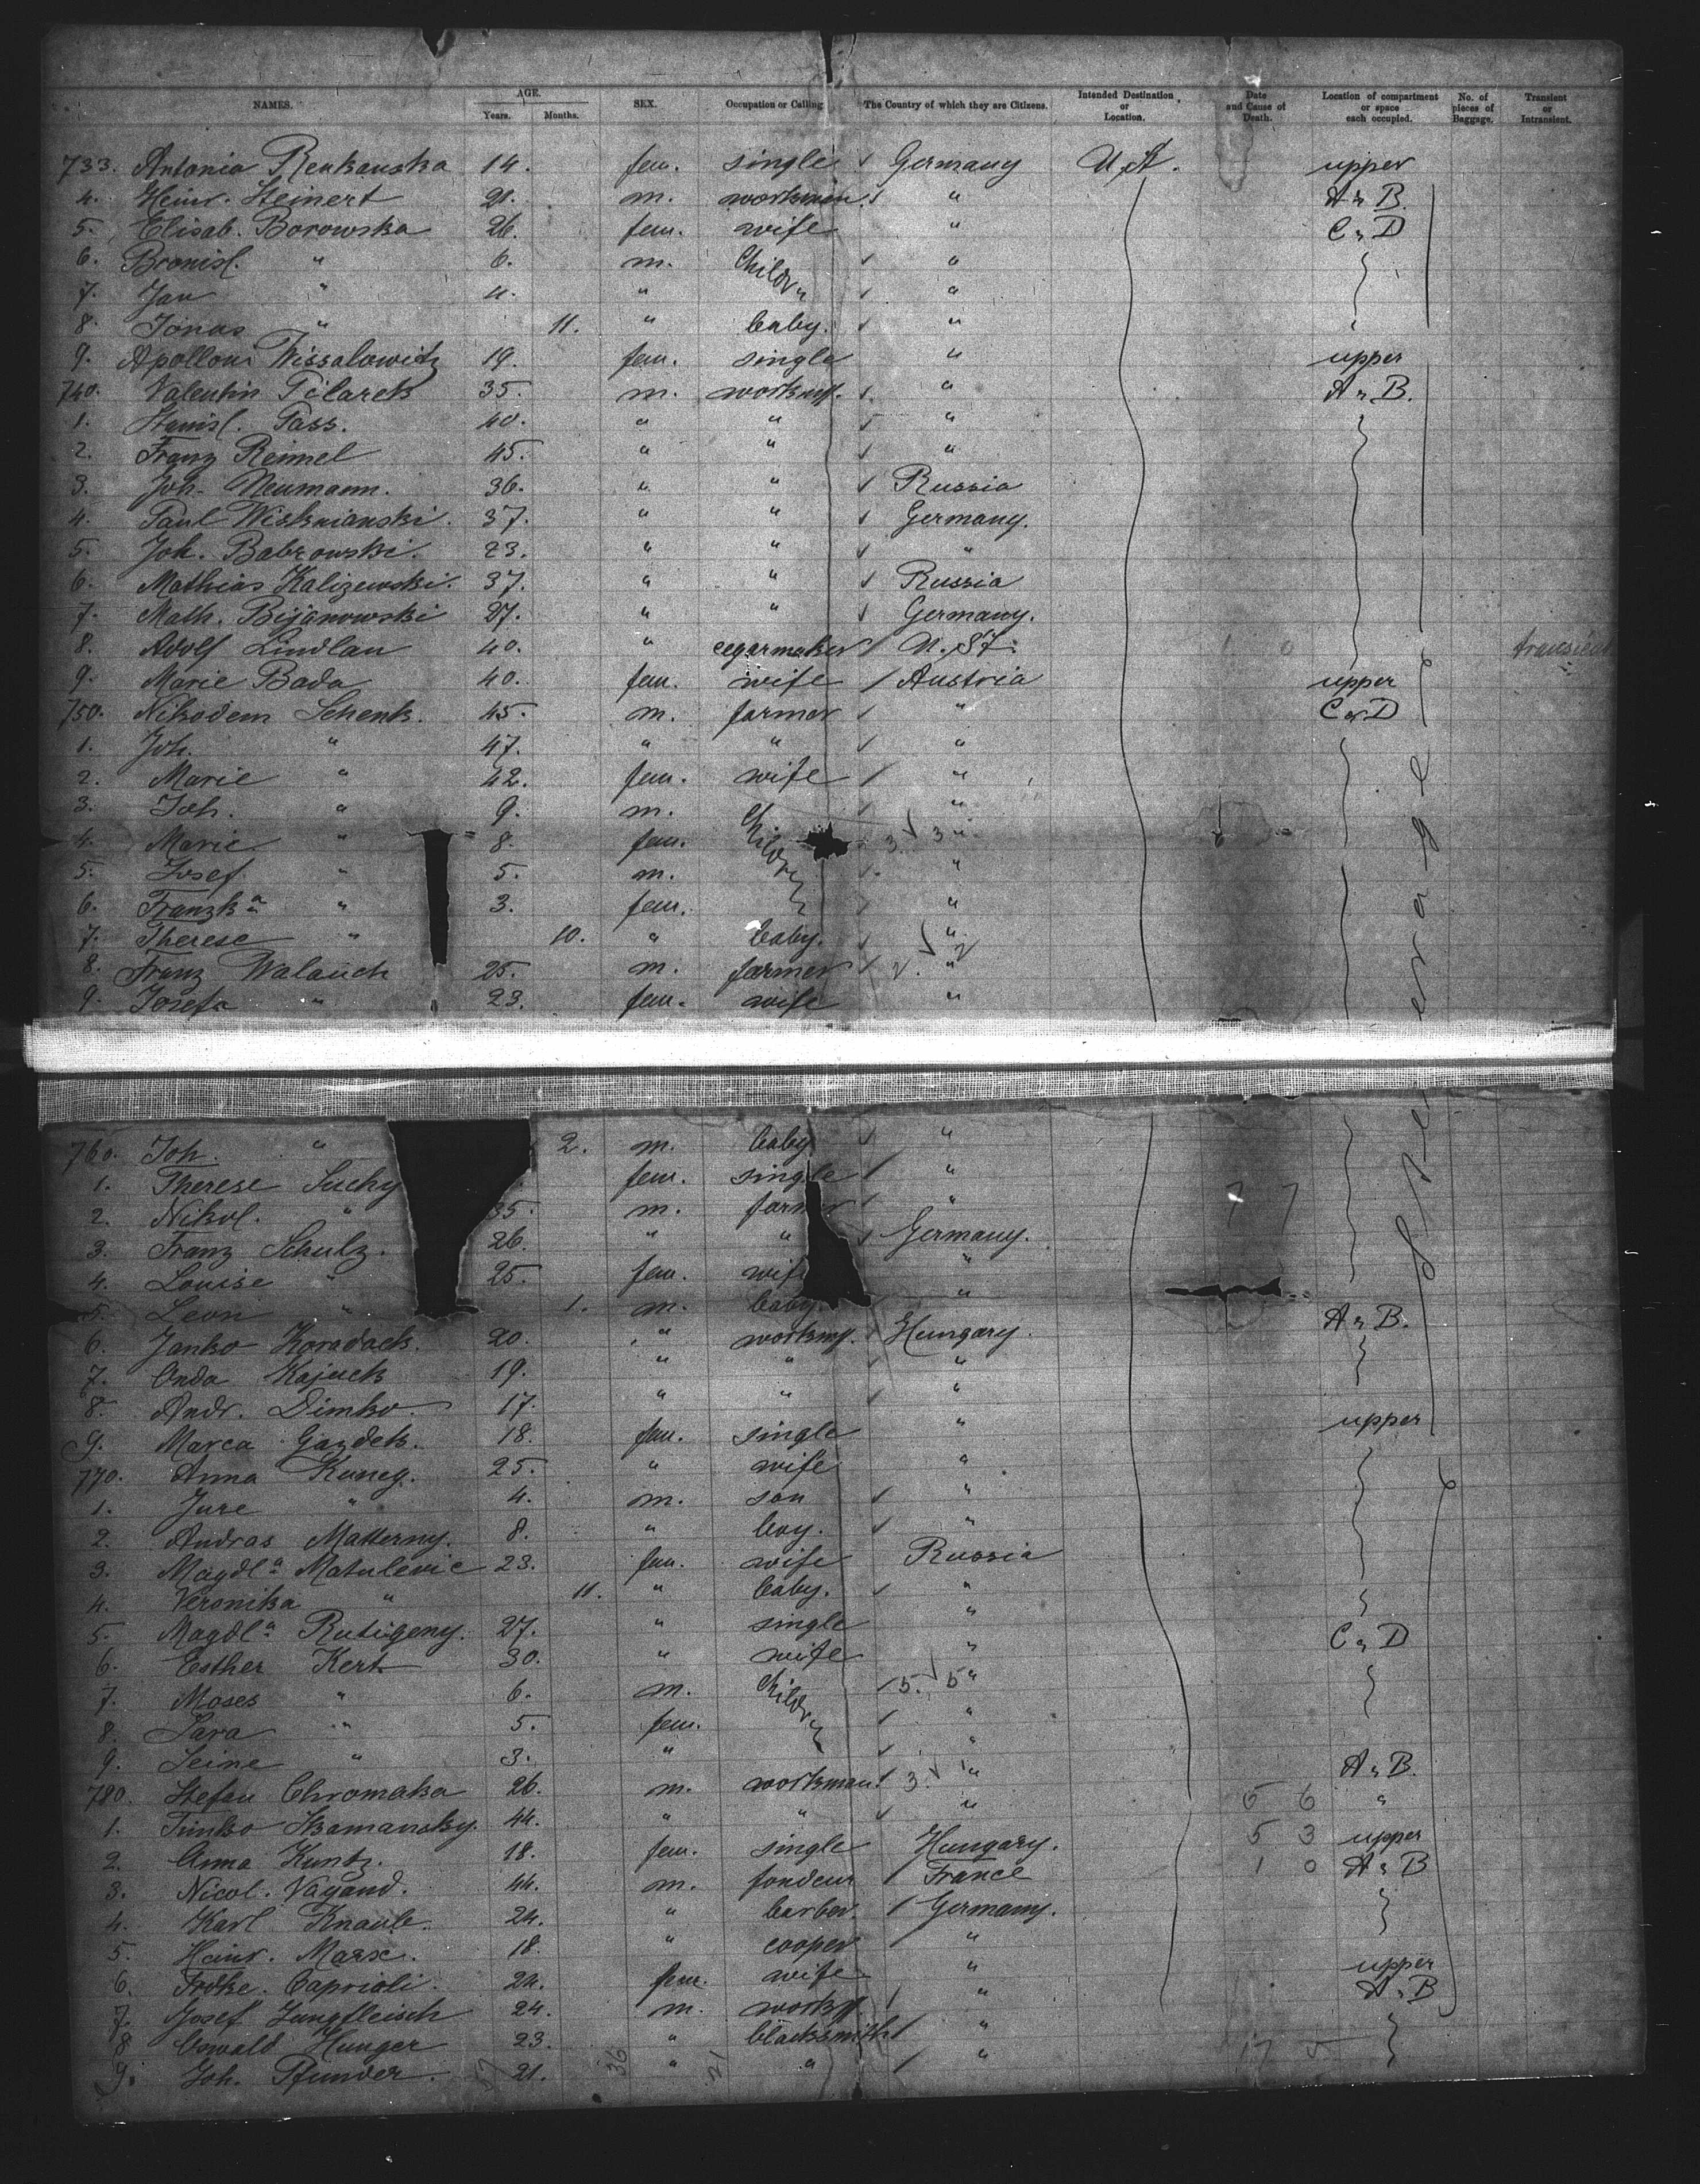 NAMES. AGE. SEX. Occupation or Calling The Country of which they are Citizens. Intended Destination or Location. Date and Cause of Death. Location of compartment or space each occupied. No. of pieces of Baggage. Transient or Intransient.
Years. Months.
733. Antonia Renkauska 14. fem. single Germany U.St. upper
4. Heinr. Steinert 21. m. workman. " A " B.
5. Elisab. Borowska 26. fem. wife " C " D
6. Bronisl. " 6. m. Childr "
7. Jan " 4. " " "
8. Jonas " 11. " baby. "
9. Apolloni Wissalowitz 19. fem. single " upper
740. Valentin Pilarek 35. m. workmn. " A " B.
1. Stanisl. Pass. 40. " " "
2. Franz Reimel 45. " " "
3. Joh. Neumann. 36. " " Russia
4. Paul Wisknianski. 37. " " Germany.
5. Joh. Babrowski. 23. " " "
6. Mathias Kalizewski. 37. " " Russia
7. Math. Bijanowski 27. " " Germany.
8. Adolf Lindlau 40. " cegarmaker U. St. 1 0 transient
9. Marie Bada 40. fem. wife Austria upper
750. Nikodem Schenk. 45. m. farmer " C " D
1. Joh. " 47. " " "
2. Marie " 42. fem. wife "
3. Joh. " 9. m. Children "
4. Marie " 8. fem. 3. 3 "
5. Josef " 5. m. "
6. Franzka " 3. fem. "
7. Therese " 10. " baby. "
8. Franz Walauch 25. m. farmer 2. 2 "
9. Josefa " 23. fem. wife "
760. Joh. " 2. m. baby "
1. Therese Suchy fem. single " 7 7
2. Nikol. " 35. m. farmer "
3. Franz Schulz. 26. " " Germany.
4. Louise " 25. fem. wife "
5. Leon " 1. m. baby. " A " B.
6. Janko Koradack. 20. " workmn. Hungary.
7. Onda Kajuck 19. " " "
8. Andr. Dimko. 17. " " "
9. Marca Gazdek. 18. fem. single " upper
770. Anna Kuneg. 25. " wife "
1. Jure " 4. m. son "
2. Andras Matterny. 8. " boy. "
3. Magdla Matulevic 23. fem. wife Russia
4. Veronika " 11. " baby. "
5. Magdla Rutigeny. 27. " single " C " D
6. Esther Kert 30. " wife "
7. Moses " 6. m. Childr 5. 5 "
8. Sara " 5. fem. "
9. Seine " 3. " " A " B.
780. Stefan Chromaka 26. m. workman 3. " 5 6 "
1. Timko 44. " " "
2. Anna Kuntz. 18. fem. single Hungary. 5 3 upper
3. Nicol. Vayand. 44. m. fondeur France 1 0 A " B
4. Karl Knaule. 24. " barber. Germany.
5. Heinr. Marx. 18. " cooper "
6. Fr. Caprioli. 24. fem. wife " upper
7. Josef Jungfleisch 24. m. workm " A " B
8 Oswald Hunger 23. " blacksmith "
9. Joh. Pfunder. 21. " " " 17 5
57 36 21
Steerage